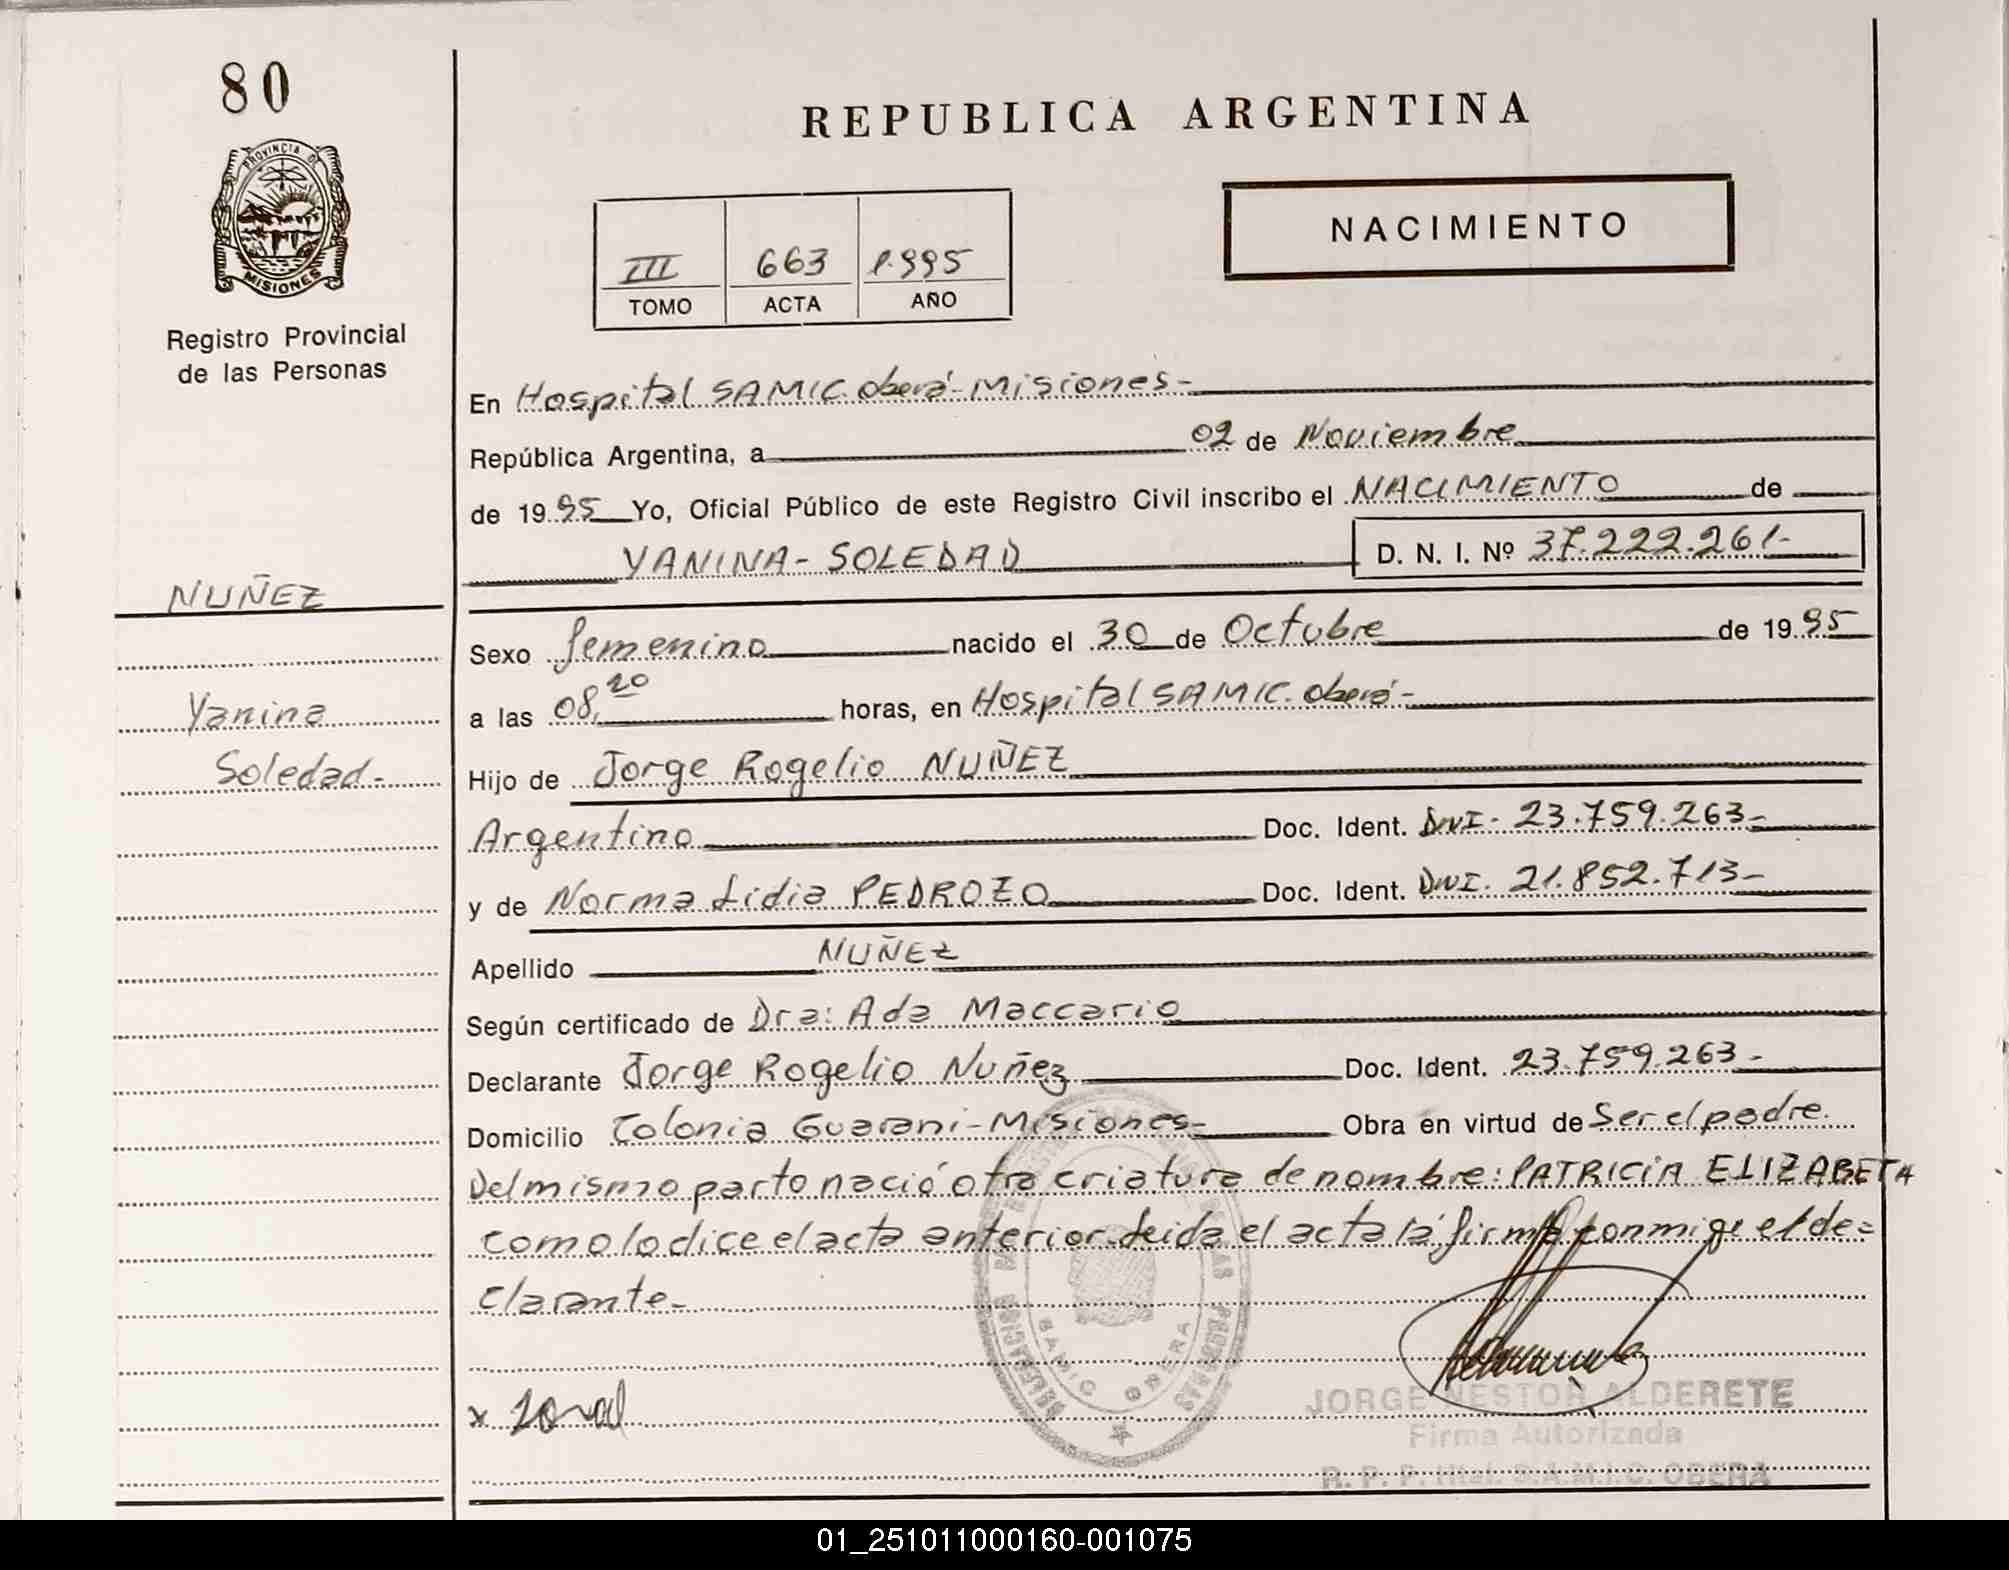 80
PROVINCIA D
MISIONES
Registro Provincial
de las Personas
REPUBLICA ARGENTINA
III 663 1.995
TOMO ACTA AÑO
NACIMIENTO
En Hospital SAMIC. Oberá-Misiones-
República Argentina, a 02 de Noviembre
de 1995 Yo, Oficial Público de este Registro Civil inscribo el NACIMIENTO de
YANINA-SOLEDAD D. N. I. Nº 37.222.261-
NUÑEZ
Sexo femenino nacido el 30 de Octubre de 1995
Yanina
a las 08,20 horas, en Hospital SAMIC. Oberá-
Soledad-
Hijo de Jorge Rogelio NUÑEZ
Argentino Doc. Ident. DNI- 23.759.263-
y de Norma Lidia PEDROZO Doc. Ident. DNI. 21.852.713-
Apellido NUÑEZ
Según certificado de Dra: Ada Maccario
Declarante Jorge Rogelio Nuñez Doc. Ident. 23.759.263-
Domicilio Colonia Guarani-Misiones- Obra en virtud de Ser el padre.
Del mismo parto nació otra criatura de nombre: PATRICIA ELIZABETA
como lo dice el acta anterior. Leida el acta la firma conmigo el de=
clarante-
DELEGACION
SAMIC OBERA
JORGE NESTOR ALDERETE
Firma Autorizada
R. P. P. Htal. S.A.M.I.C. OBERA
01_251011000160-001075